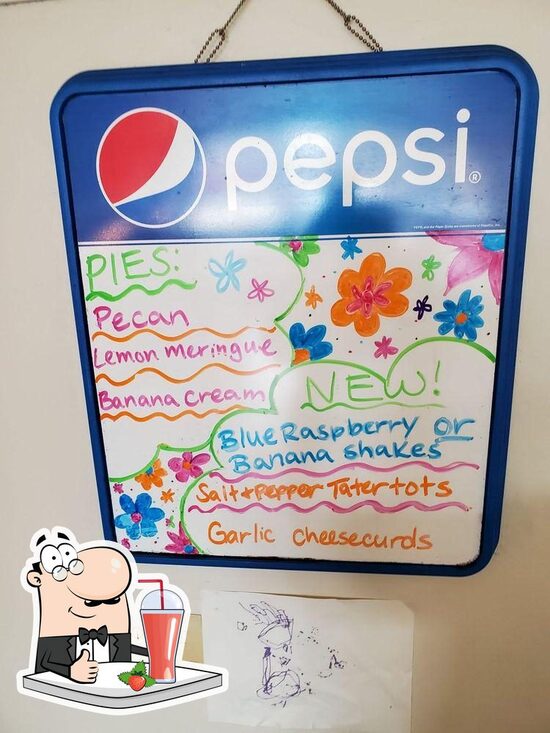 pepsi®
PIES:
Pecan
Lemon meringue
Banana Cream
NEW!
Blue Raspberry or
Banana shakes
Salt + Pepper Tater tots
Garlic cheesecurds